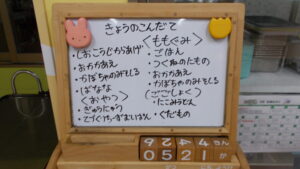 きょうのこんだて
・しおこうじからあげ
・おかかあえ
・かぼちゃのみそしる
・ばなな
〈おやつ〉
・ぎゅうにゅう
〈ももぐみ〉
・ごはん
・つくねのたもの
・おかかあえ
・かぼちゃのみそしる
〈ごごしょく〉
・たこみうどん
・くだもの
0521か